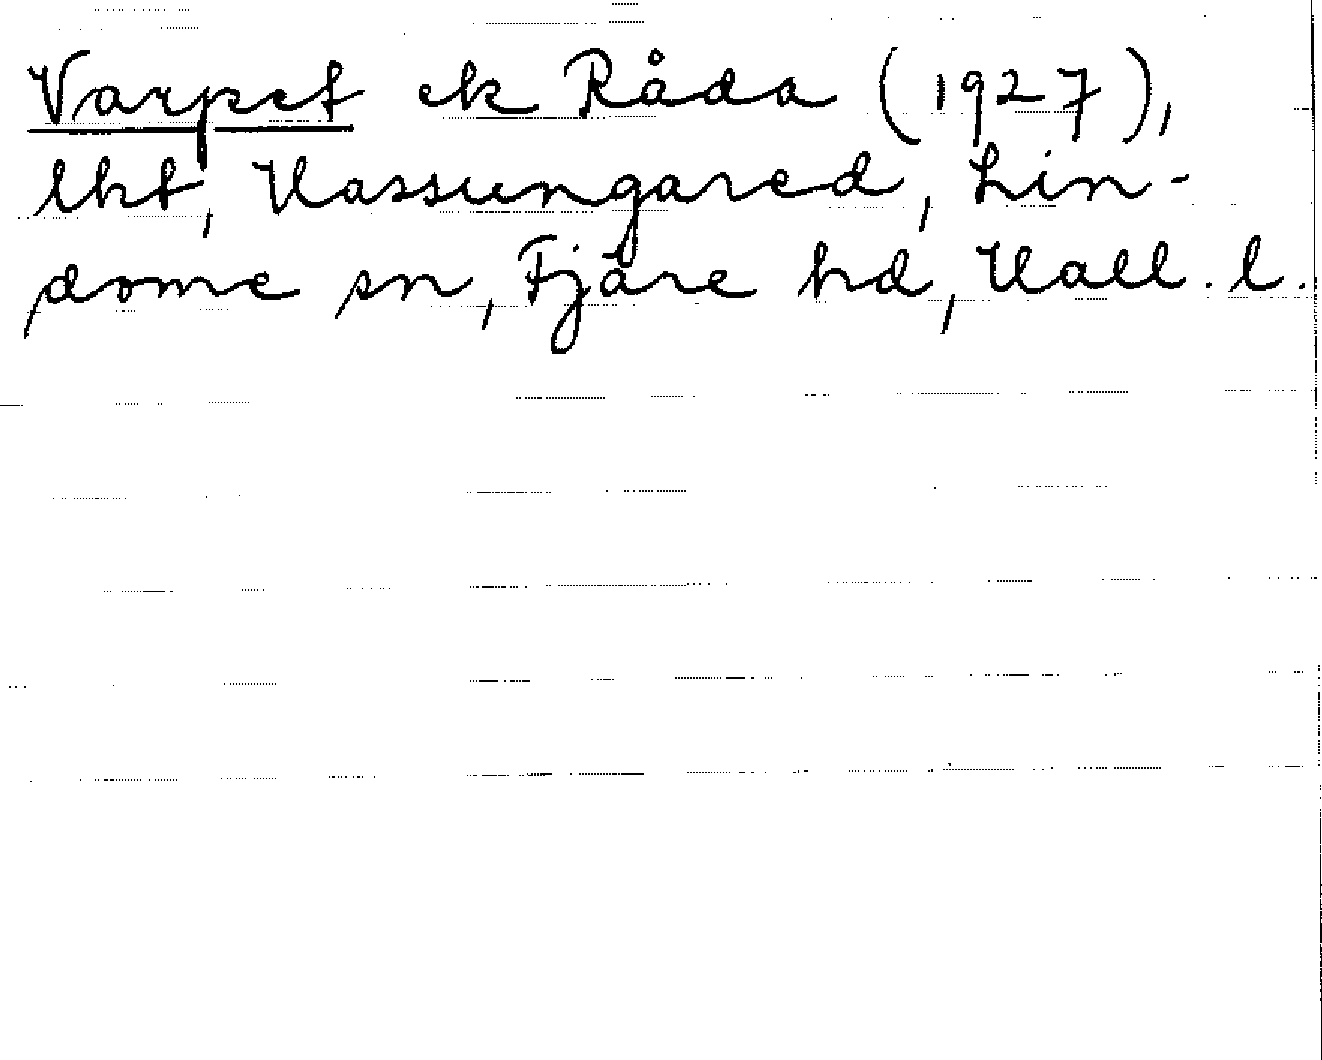 Varpet ek Råda (1927),
lht, Vassungared, Lin-
dome sn, Fjäre hd, Hall. l.